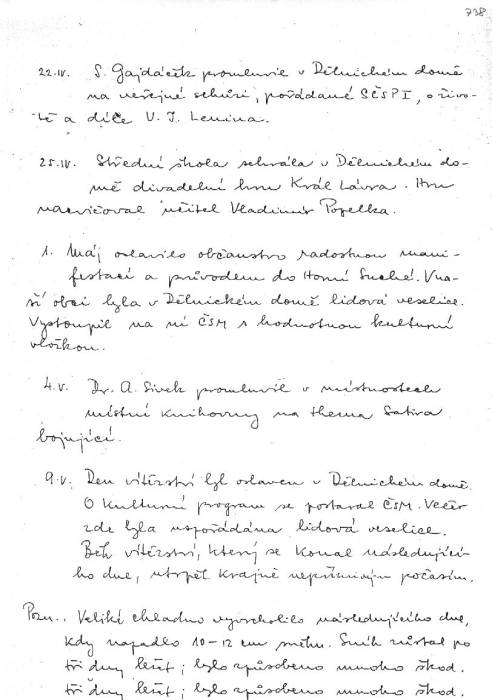 738
22.IV. S. Gajdáček promluvil v Dělnickém domě
na veřejné schůzi, pořádané SČSPI, o živo-
tě a díle V. I. Lenina.
25.IV. Střední škola sehrála v Dělnickém do-
mě divadelní hru Král Lávra. Hru
nacvičoval učitel Vladimír Popelka.
1. Máj oslavilo občanstvo radostnou mani-
festací a průvodem do Horní Suché. V na-
ší obci byla v Dělnickém domě lidová veselice.
Vystoupil na ní ČSM s hodnotnou kulturní
vložkou.
4.V. Dr. A. Sivek promluvil v místnostech
místní knihovny na thema Satira
bojující.
9.V. Den vítězství byl oslaven v Dělnickém domě.
O kulturní program se postaral ČSM. Večer
zde byla uspořádána lidová veselice.
Běh vítězství, který se konal následující-
ho dne, utrpěl krajně nepříznivým počasím.
Pozn.. Veliké chladno vyvrcholilo následujícího dne,
kdy napadlo 10-12 cm sněhu. Sníh zůstal po
tři dny ležet; bylo způsobeno mnoho škod.
tři dny ležet; bylo způsobeno mnoho škod.